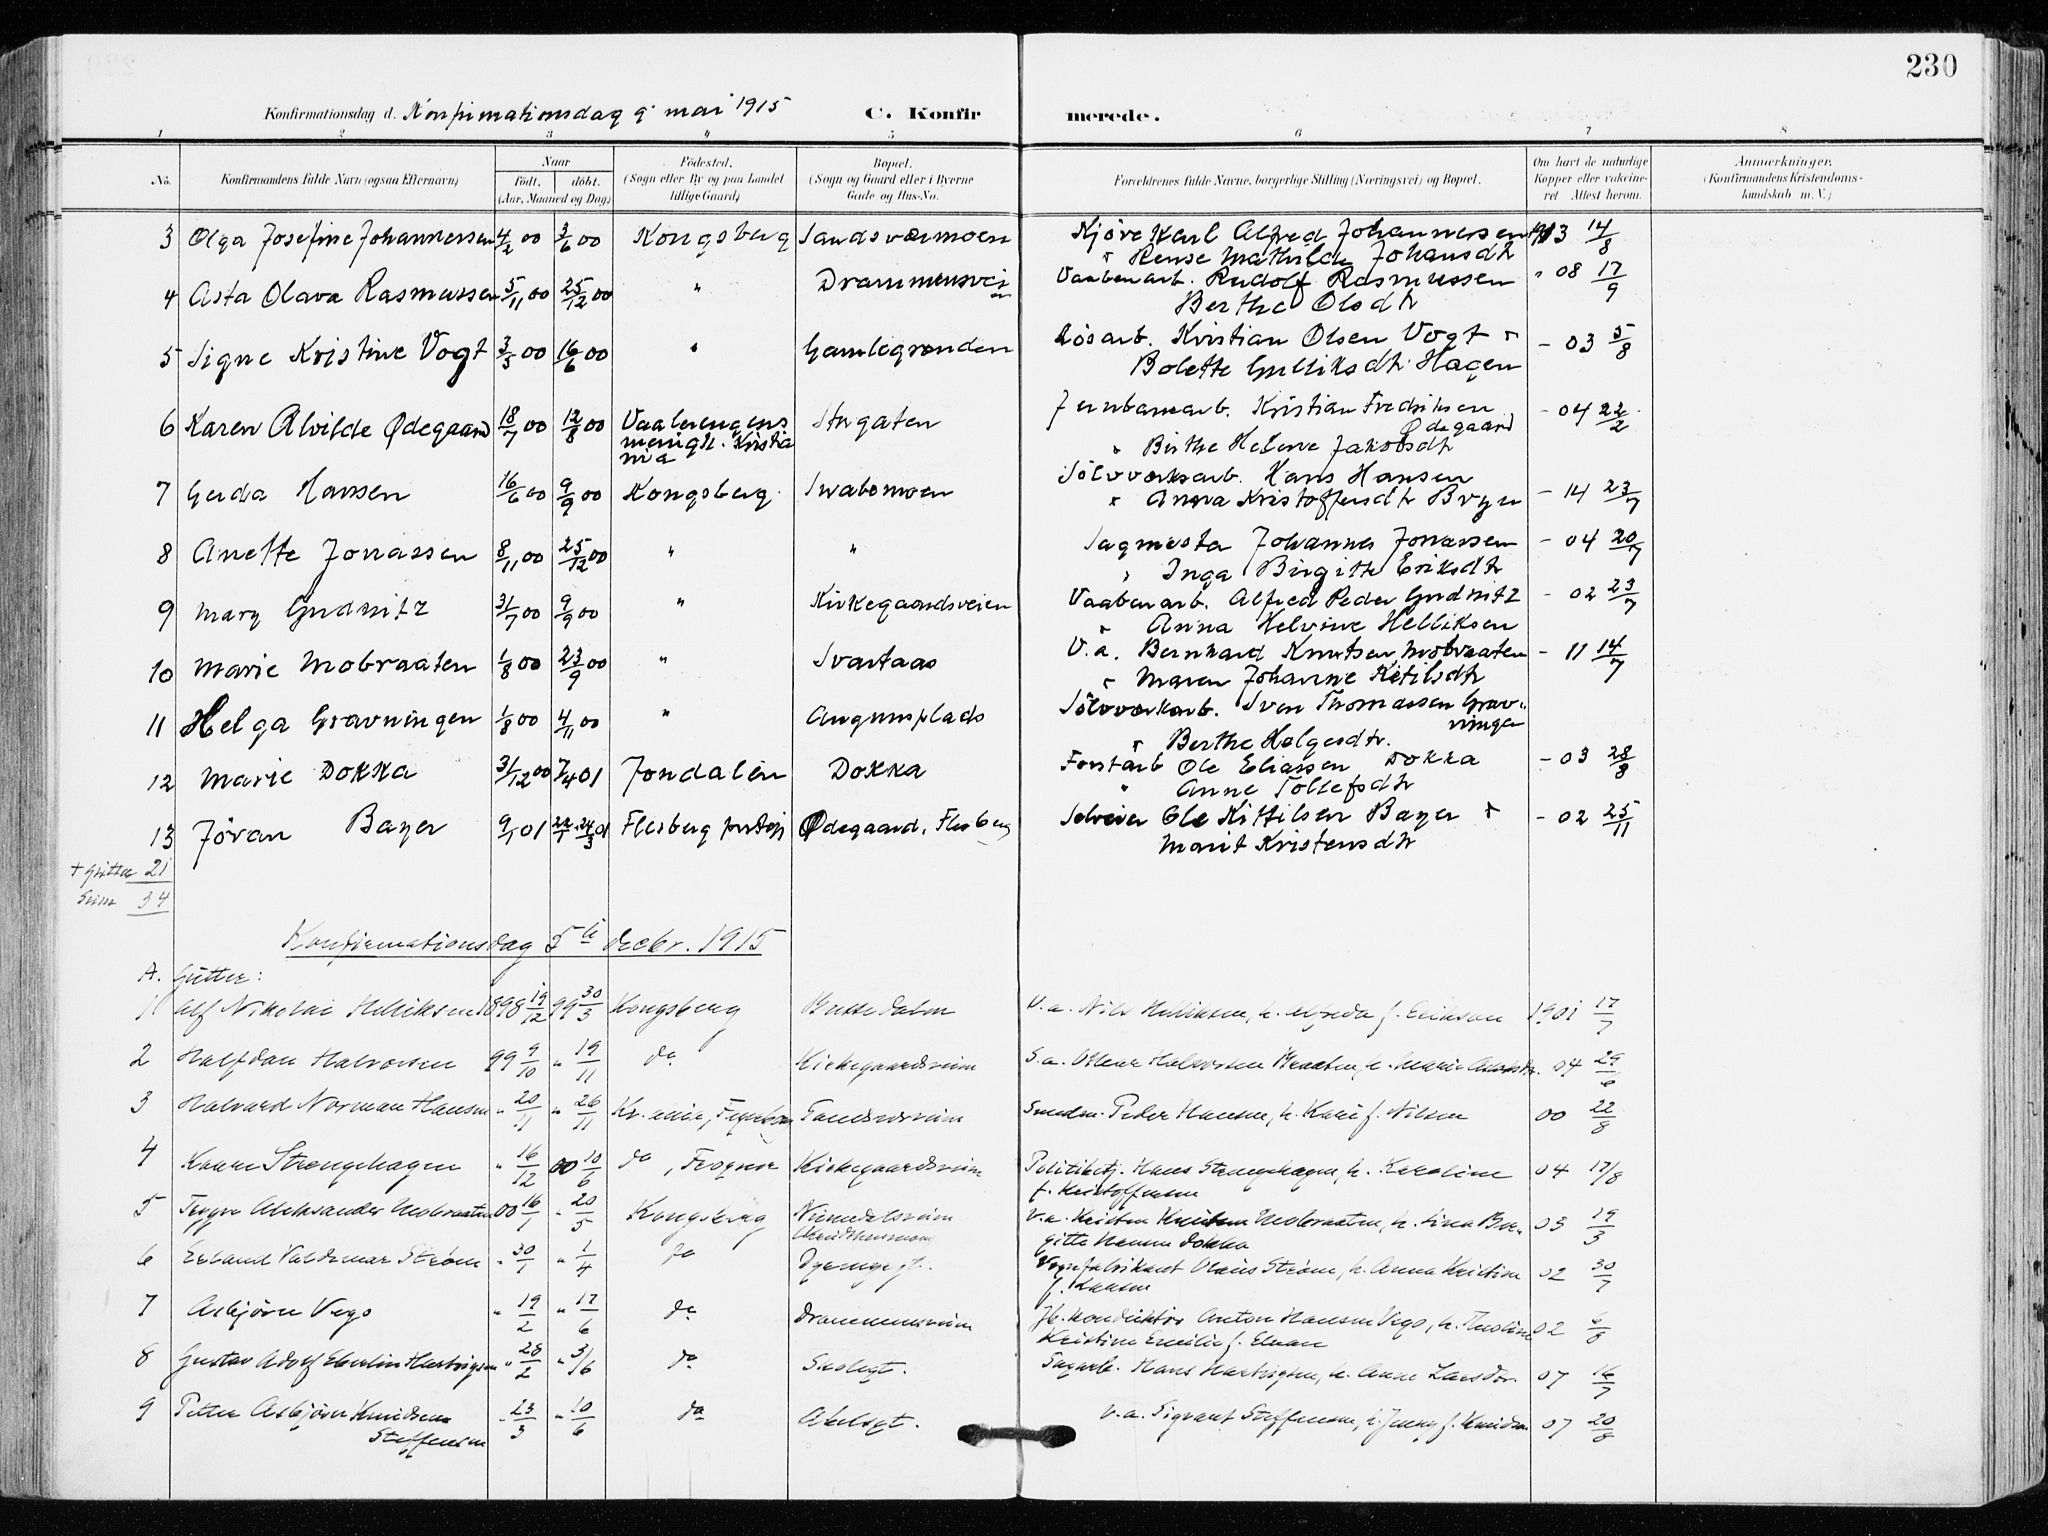 230
Konfirmationsdag d. Konfirmationsdag 9 mai 1915 C. Konfirmerede.
1 2 3 4 5 6 7 8
No. Konfirmandens fulde Navn (ogsaa Efternavn) Naar født. døbt. (Aar, Maaned og Dag) Fødested. (Sogn eller By og paa Landet tillige Gaard) Bopæl. (Sogn og Gaard eller i Byerne Gade og Hus-No. Forældrenes fulde Navne, borgerlige Stilling (Næringsvei) og Bopæl. Om havt de naturlige Kopper eller vakcineret Attest herom. Anmerkninger. (Konfirmandens Kristendomskundskab m. V.)
3 Olga Josefine Johannessen 4/2 00 3/6 00 Kongsberg Sandsværmoen Kjøre Karl Alfred Johannessen 1913 14/8
Rense Mathilde Johansdtr
4 Asta Olava Rasmussen 5/11 00 25/12 00 " Drammensveien Vaabenarb. Rudolf Rasmussen " 08 17/9
Berthe Olsdtr
5 Signe Kristine Vogt 3/5 00 16/6 00 " Gamlegrenden Løsarb. Kristian Olsen Vogt - 03 5/8
Bolette Gulliksdtr Hagen
6 Karen Alvilde Ødegaard 18/7 00 12/8 00 Vaalerengens menigh. Kristiania Stugaten Jernbanearb. Kristian Fredriksen Ødegaard - 04 22/2
Birthe Helene Jakobsdtr
7 Gerda Hansen 16/6 00 9/9 00 Kongsberg Svabomoen Sølvverksarb. Hans Hansen
Anna Kristoffersdtr Bryn - 14 23/7
8 Anette Jonassen 8/11 00 25/12 00 " " Sagmester Johannes Jonassen - 04 20/7
Inga Birgitte Eriksdtr
9 Mary Gudnitz 31/7 00 9/9 00 " Kirkegaardsveien Vaabenarb. Alfred Peder Gudnitz - 02 23/7
Anna Helvine Helliksen
10 Marie Mobraaten 1/8 00 23/9 00 " Svartaas V.a. Bernhard Knutsen Mobraaten - 11 14/7
Maren Johanne Ketilsdtr
11 Helga Gravningen 1/8 00 4/11 00 " Augunsplads Sølvverksarb. Sven Thomassen Gravningen
Berthe Helgesdtr.
12 Marie Dokka 31/12 00 7/4 01 Jondalen Dokka Forstarb Ole Eliassen Dokka - 03 28/8
Anne Tollefsdtr
13 Jøran Bayer 9/1 01 24/3 01 Flesberg Ødegaard, Flesberg Selveier Ole Kittilsen Bayer - 02 25/11
Marit Kristensdtr
+ Gutter 21
Sum 34
Konfirmationsdag 5te decbr. 1915
A. Gutter:
1 Alf Nikolai Helliksen 1898 19/12 99 30/3 Kongsberg V.a. Nils Helliksen, h. Alfreda f. Eriksen 1901 17/7
2 Halfdan Halvorsen 99 9/10 " 19/11 do Kirkegaardsveien S.a. Halvorsen Braaten, h. Marie 04 29/6
3 Halvard Norman Hansen " 20/11 " 26/11 Kr.ania, Smedm. Peder Hansen, h. Kari f. Nilsen 00 22/8
4 Kaare Strengehagen " 16/12 00 10/6 do, Frogner Kirkegaardsveien Politibetj. Hans Strengehagen, h. Karoline 04 17/8
f. Kristoffersen
5 Trygve Aleksander Mobraaten 00 16/1 " 20/5 Kongsberg Numedalsveien V.a. Kristen Knutsen Mobraaten, h. 03 19/3
Hansen Dokka
6 Erland Valdemar Strøm " 30/1 " 1/4 do Dyrmyrgt. Vognfabrikant Olaus Strøm, h. Anna Kristine 02 30/7
f. Larsen
7 Asbjørn Vego " 19/2 " 17/6 do Drammensveien Jb. konduktør Anton Hansen Vego, h. 02 6/8
Kristine Emilie f.
8 Gustav Adolf Eberlin Hartvigsen " 28/2 " 3/6 do Skolegt. Sagarb. Hans Hartvigsen, h. Anne Larsdtr. 07 16/7
9 Petter Asbjørn Knudsen " 23/3 " 10/6 do Akelsgt. V.a. Sigvart Steffensen, h. Jenny f. Knudsen 07 20/8
Steffensen